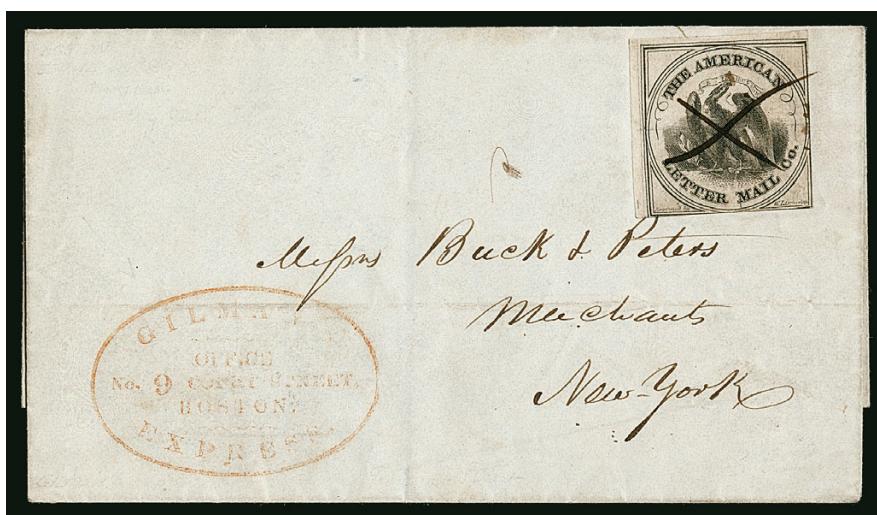 THE AMERICAN
LETTER MAIL Co.
Messrs Buck & Peters
Merchants
New-York
GILMAN'S
OFFICE
No. 9 COURT STREET,
BOSTON.
EXPRESS.